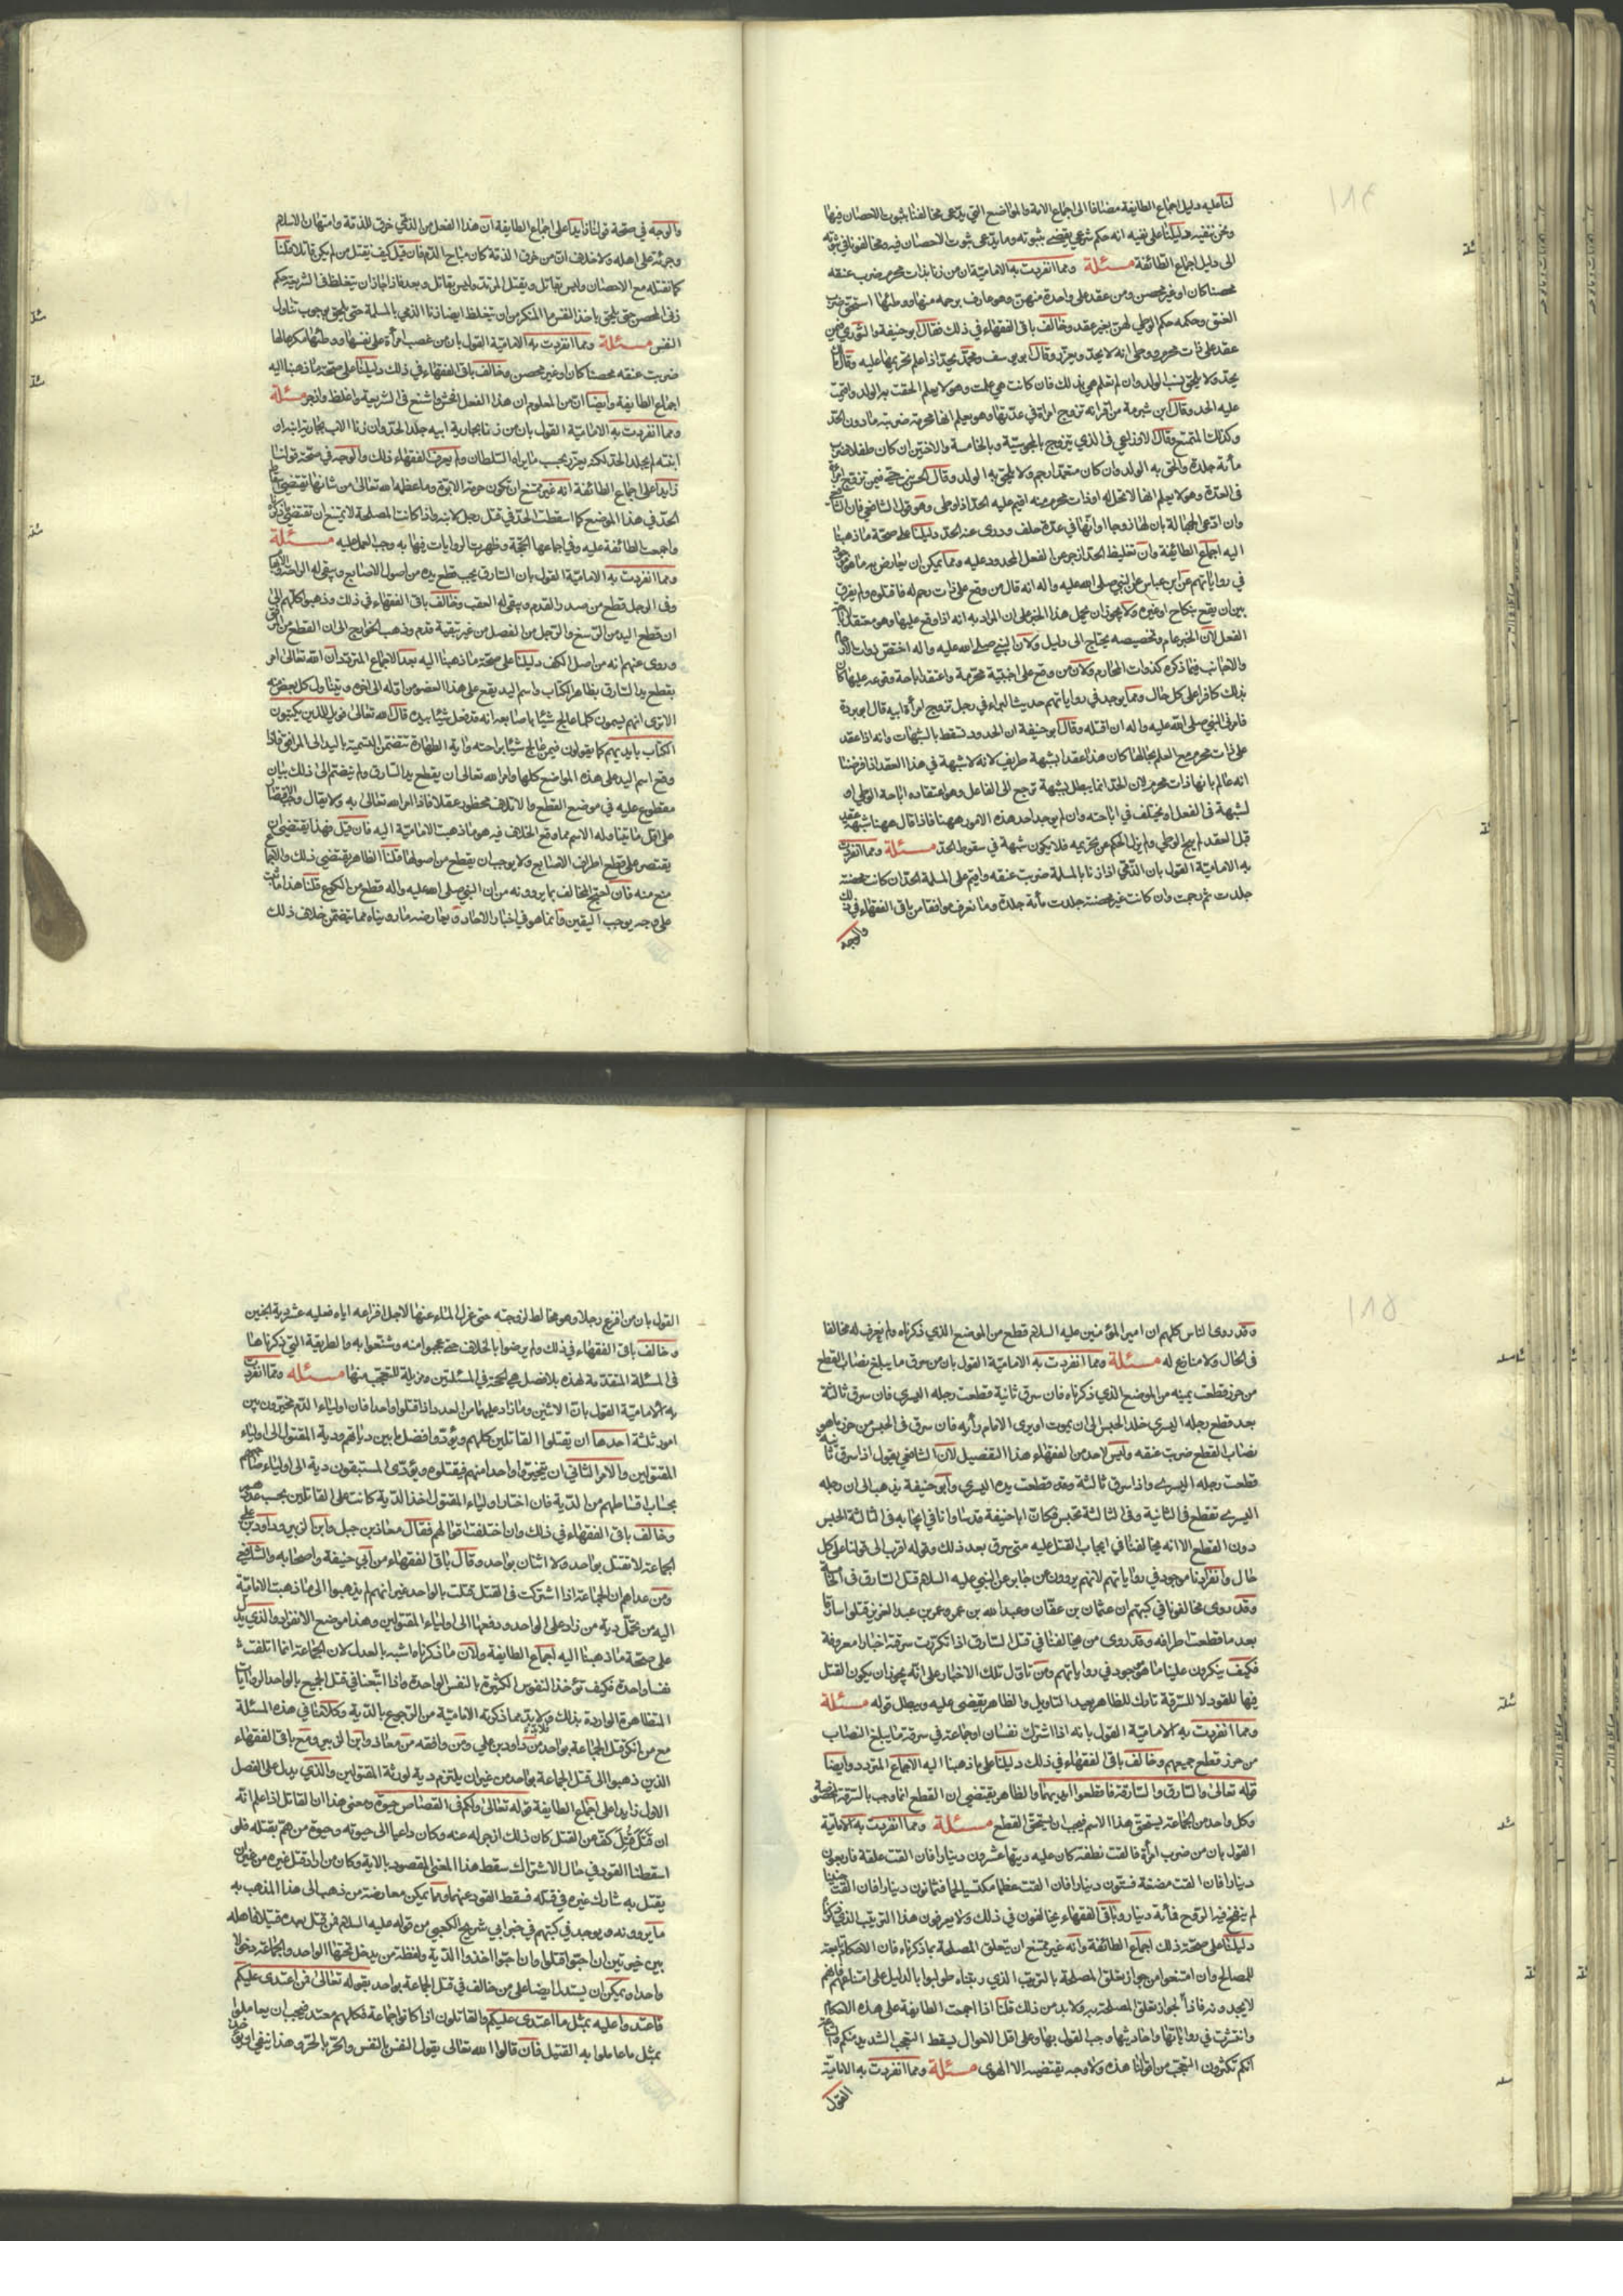 ١١٤
لنا عليه دليل اجماع الطايفة مضافا الى اجماع الامة والمواضع التي يدعى مخالفنا ثبوت الاحصان فيها
ونحن ننفيه دليلنا على نفيه انه حكم شرعي يقتضي ثبوته وما يدعى ثبوت الاحصان فيه ومخالفونا في ثبوته
الى دليل اجماع الطائفة مسئلة ومما انفردت به الامامية ان من زنا بذات محرم ضرب عنقه
محصنا كان او غير محصن ومن عقد على واحدة منهن وهو عارف برحمه منها ووطئها استحق ضرب
العنق وحكمه حكم الوطي لهن بغير عقد وخالف باقى الفقهاء في ذلك فقال ابو حنيفة والثوري فيمن
عقد على ذات محرم ووطى انه لا يحد ويعزر وقال ابو يوسف ومحمد يحد اذا علم تحريمها عليه وقال
يحد ولا يلحق نسب الولد وان لم تعلم هي بذلك فان كانت هي علمت وهو لا يعلم الحقت به الولد واقمت
عليه الحد وقال ابن شبرمة من اقر انه تزوج امراة في عدتها وهو يعلم انها محرمة ضربته مادون الحد
وكذلك المتمتع وقال الاوزاعي في الذي يتزوج بالمجوسية وبالخامسة والاختين ان كان جاهلا ضرب
مأة جلدة والحق به الولد وان كان متعمدا رجم ولا يلحق به الولد وقال الحسن بن حي فيمن تزوج امرأة
فى العدة وهو لا يعلم انها لا تحل له او ذات محرم منه اقيم عليه الحد اذا وطى وهو قول الشافعي
وان ادعى الجهالة بان لها زوجا او انها في عدة حلف ودرى عنه الحد دليلنا على صحة ما ذهبنا
اليه اجماع الطائفة وان تغليظ الحد ازجر عن الفعل المحدود عليه ومما يمكن ان يعارض به ما هو موجود
في رواياتهم عن ابن عباس عن النبي صلى الله عليه واله انه قال من وقع على ذات رحم له فاقتلوه ولم يفرق
بين ان يقع بنكاح او غيره ولا يجوز ان يحمل هذا الخبر على ان المراد به انه اذا وقع عليها وهو معتقد لاباحة
الفعل لان الخبر عام وتخصيصه يحتاج الى دليل ولان النبي صلى الله عليه واله اختص ذوات الارحام
والاجانب فيما ذكره كذوات المحارم ولان من وقع على اجنبية محرمة واعتقد اباحة وقوعه عليها كان
بذلك كافرا على كل حال ومما يوجد في رواياتهم حديث البراء في رجل تزوج امرأة ابيه قال ابو بردة
فامرنى النبي صلى الله عليه واله ان اقتله وقال ابو حنيفة ان الحدود تسقط بالشبهات وانه اذا عقد
على ذات محرم مع العلم بحالها كان هذا عقدا بشبهة طريف لانه لا شبهة في هذا العقد اذا فرضنا
انه عالم بانها ذات محرم لان الحد انما يبطل بشبهة ترجع الى الفاعل وهو اعتقاده اباحة الوطي او
لشبهة فى الفعل او يختلف في اباحته وان لم يوجد احد هذه الامور ههنا فاذا قال ههنا شبهة عقد
قبل العقد لم يبح الوطي ولم يزل الحكم عن تحريمه فلا يكون شبهة في سقوط الحد مسئلة ومما انفردت
به الامامية القول بان الذمي اذا زنا بالمسلمة ضربت عنقه واقيم على المسلمة الحد ان كانت محصنة
جلدت ثم رجمت وان كانت غير محصنة جلدت مأة جلدة وما نعرف موافقا من باقى الفقهاء في ذلك
والوجه
والوجه في صحة قولنا زايدا على اجماع الطايفة ان هذا الفعل من الذمي خرق للذمة وامتهان للاسلام
وجرئة على اهله ولا خلاف ان من خرق الذمة كان مباح الدم فان قيل كيف يقتل من لم يكن قاتلا قلنا
كما نقتله مع الاحصان وليس بقاتل ويقتل المرتد وليس بقاتل وبعد فاذا جاز ان يتغلظ في الشريعة حكم
زنى المحصن حتى يلحق باخذ النفس ما المنكر من ان يتغلظ ايضا زنا الذمي بالمسلمة حتى يلحق بوجوب تناول
النفس مسئلة ومما انفردت به الامامية القول بان من غصب امرأة على نفسها ووطئها مكرها لها
ضربت عنقه محصنا كان او غير محصن وخالف باقى الفقهاء في ذلك دليلنا على صحة ما ذهبنا اليه
اجماع الطايفة وايضا ان من المعلوم ان هذا الفعل افحش واشنع فى الشريعة واغلظ وانجر مسئلة
ومما انفردت به الامامية القول بان من زنا بجارية ابيه جلد الحد وان زنا الاب بجارية ابنه او
ابنته لم يجلد الحد لكنه يعزر بحسب ما يراه السلطان ولم يعرف الفقهاء ذلك والوجه في صحة قولنا
زايدا على اجماع الطائفة انه غير ممتنع ان تكون حرمة الابوة وما عظمه الله تعالى من شانها تقتضي اسقاط
الحد في هذا الموضع كما اسقطت الحد في قتل رجل لابنه واذا كانت المصلحة لا يمتنع ان تقتضي ما ذكرناه
واجمعت الطائفة عليه وفي اجماعها الحجة وظهرت الروايات فيها به وجب العمل عليه مسئلة
ومما انفردت به الامامية القول بان السارق يجب قطع يده من اصول الاصابع ويبقى له الراحة والابهام
وفى الرجل قطع من صدر القدم ويبقى له العقب وخالف باقى الفقهاء في ذلك وذهبوا كلهم الى
ان قطع اليد من الرسغ والرجل من المفصل من غير تبقية قدم وذهب الخوارج الى ان القطع من المرفق
وروى عنهم انه من اصل الكف دليلنا على صحة ما ذهبنا اليه بعد الاجماع المتردد ان الله تعالى امر
بقطع يد السارق بظاهر الكتاب واسم اليد يقع على هذا العضو من اوله الى اخره ويتناول كل بعض منه
الا ترى انهم يسمون كلما عالج شيئا باصابعه انه قد فعل شيئا بيده قال الله تعالى فويل للذين يكتبون
الكتاب بايديهم كما يقولون فيمن عالج شيئا براحته واية الطهارة تتضمن التسمية باليد الى المرافق فاذا
وقع اسم اليد على هذه المواضع كلها وامر الله تعالى ان يقطع يد السارق ولم ينضم الى ذلك بيان
مقطوع عليه في موضع القطع والاتلاف محظور عقلا فاذا امر الله تعالى به ولا بيان وجب القطع
على اقل ما يتناوله الاسم مما وقع الخلاف فيه هو ما ذهبت الامامية اليه فان قيل فهذا يقتضي ان
يقتصر على قطع اطراف الاصابع ولا يوجب ان يقطع من اصولها قلنا الظاهر يقتضي ذلك والاجماع
منع منه فان احتج المخالف بما يروونه من ان النبي صلى الله عليه واله قطع من الكوع قلنا هذا ما ثبت
على وجه يوجب اليقين وانما هو في اخبار الاحاد ويعارضه ما رويناه مما يتضمن خلاف ذلك
١١٥
وقد روى الناس كلهم ان امير المؤمنين عليه السلام قطع من الموضع الذي ذكرناه ولم نعرف له مخالفا
فى الحال ولا منازع له مسئلة ومما انفردت به الامامية القول بان من سرق ما يبلغ نصاب القطع
من حرز قطعت يمينه من الموضع الذي ذكرناه فان سرق ثانية قطعت رجله اليسرى فان سرق ثالثة
بعد قطع رجله اليسرى خلد الحبس الى ان يموت او يرى الامام رأيه فان سرق فى الحبس من حرز ما هو
نصاب القطع ضرب عنقه وليس لاحد من الفقهاء هذا التفصيل لان الشافعي يقول اذا سرق ثانية
قطعت رجله اليسرى واذا سرق ثالثة وقد قطعت يده اليسرى وابو حنيفة يذهب الى ان رجله
اليسرى تقطع فى الثانية وفى الثالثة تحبس فكان ابا حنيفة قد ساوانا في ايجابه فى الثالثة الحبس
دون القطع الا انه يخالفنا في ايجاب القتل عليه متى سرق بعد ذلك وقوله اقرب الى قولنا على كل
حال وانفرادنا موجود في رواياتهم لانهم يروون عن جابر عن النبي عليه السلام قتل السارق فى الخامسة
وقد روى مخالفونا في كتبهم ان عثمان بن عفان وعبد الله بن عمر وعمر بن عبد العزيز قتلوا سارقا
بعد ما قطعت اطرافه وقد روى من يخالفنا في قتل السارق اذا تكررت سرقته اخبارا معروفة
فكيف ينكرون علينا ما هو موجود في رواياتهم ومن تاول تلك الاخبار على انه يجوز ان يكون القتل
فيها للقود لا للسرقة تارك للظاهر بعيد التاويل والظاهر يقضى عليه ويبطل قوله مسئلة
ومما انفردت به الامامية القول بانه اذا اشترك نفسان او جماعة في سرقة ما يبلغ النصاب
من حرز قطع جميعهم وخالف باقى الفقهاء في ذلك دليلنا على ما ذهبنا اليه الاجماع المتردد وايضا
قوله تعالى والسارق والسارقة فاقطعوا ايديهما والظاهر يقتضي ان القطع انما وجب بالسرقة المخصوصة
وكل واحد من الجماعة يستحق هذا الاسم فيجب ان يستحق القطع مسئلة ومما انفردت به الامامية
القول بان من ضرب امرأة فالقت نطفة كان عليه ديتها عشرون دينارا فان القت علقة فاربعون
دينارا فان القت مضغة فستون دينارا فان القت عظما مكتسيا لحما فثمانون دينارا فان القت جنينا
لم ينفخ فيه الروح فمأة دينار وباقى الفقهاء يخالفون في ذلك ولا يعرفون هذا الترتيب الذي ذكرناه
دليلنا على صحة ذلك اجماع الطائفة وانه غير ممتنع ان يتعلق المصلحة بما ذكرناه فان الاحكام تابعة
للمصالح وان امتنعوا من جواز تعلق المصلحة بالترتيب الذي رتبناه طولبوا بالدليل على امتناعه فانهم
لا يجدونه فاذا الجواز تعلق المصلحة به ولا بد من ذلك قلنا اذا اجمعت الطايفة على هذه الاحكام
وانتشرت في رواياتها واحاديثها وجب القول بها وعلى اقل الاحوال يسقط التعجب الشديد منكم
انكم تكثرون التعجب من اقوالنا هذه ولا وجه يقتضيه الا الهوى مسئلة ومما انفردت به الامامية
القول
القول بان من افزع رجلا وهو مخالط لزوجته حتى عزل الماء عنها لاجل افزاعه اياه فعليه عشر دية الجنين
وخالف باقى الفقهاء في ذلك ولم يرضوا بالخلاف حتى عجبوا منه وشنعوا به والطريقة التي ذكرناها
فى المسئلة المتقدمة لهذه بلا فصل هي الحجة في المسئلتين ومزيلة للتعجب منها مسئلة ومما انفردت
به الامامية القول بان الاثنين وما زاد عليهما من العدد اذا قتلوا واحدا فان اولياء الدم مخيرون بين
امور ثلثة احدها ان يقتلوا القاتلين كلهم ويؤدوا فضل ما بين دياتهم ودية المقتول الى اولياء
المقتولين والامر الثاني ان يتخيروا واحدا منهم فيقتلوه ويؤدى المستبقون دية الى اولياء صاحبهم
بحساب اقساطهم من الدية فان اختار اولياء المقتول اخذ الدية كانت على القاتلين بحسب عددهم
وخالف باقى الفقهاء في ذلك وان اختلفت اقوالهم فقال معاذ بن جبل وابن الزبير وداود بن علي
الجماعة لا تقتل بواحد ولا اثنان بواحد وقال باقى الفقهاء من ابي حنيفة واصحابه والشافعي
ومن عداهم ان الجماعة اذا اشتركت فى القتل قتلت بالواحد غير انهم لم يذهبوا الى ما ذهبت الامامية
اليه من تحمل دية من زاد على الواحد ودفعها الى اولياء المقتولين وهذا موضع الانفراد والذي يدل
على صحة ما ذهبنا اليه اجماع الطايفة ولان ما ذكرناه اشبه بالعدل لان الجماعة انما اتلفت
نفسا واحدة فكيف تؤخذ النفوس الكثيرة بالنفس الواحدة واذا اتبعنا في قتل الجميع بالواحد الروايات
المتظاهرة الواردة بذلك ولا بد مما ذكرته الامامية من الرجوع بالدية وكلامنا في هذه المسئلة
مع من انكر قتل الجماعة بواحد من داود بن علي ومن وافقه من معاذ وابن الزبير ومع باقى الفقهاء
الذين ذهبوا الى قتل الجماعة بواحد من غير ان يلتزم دية لورثة المقتولين والذي يدل على الفصل
الاول زايدا على اجماع الطايفة قوله تعالى ولكم فى القصاص حيوة ومعنى هذا ان القاتل اذا علم انه
ان قَتَلَ قُتِلَ كف عن القتل كان ذلك ازجر له عنه وكان داعيا الى حيوته وحيوة من هم بقتله فلو
اسقطنا القود في حال الاشتراك سقط هذا المعنى المقصود بالاية وكان من اراد قتل غيره من غير ان
يقتل به شارك غيره في قتله فسقط القود عنهما ومما يمكن معارضة من ذهب الى هذا المذهب به
ما يروونه ويوجد في كتبهم في خبر ابي شريح الكعبي من قوله عليه السلام فمن قتل بعده قتيلا فاهله
بين خيرتين ان احبوا قتلوا وان احبوا اخذوا الدية ولفظة من يدخل تحتها الواحد والجماعة دخولا
واحدا ويمكن ان يستدل ايضا على من خالف في قتل الجماعة بواحد بقوله تعالى فمن اعتدى عليكم
فاعتدوا عليه بمثل ما اعتدى عليكم والقاتلون اذا كانوا جماعة فكلهم معتد فيجب ان يعاملوا
بمثل ما عاملوا به القتيل فان قالوا الله تعالى يقول النفس بالنفس والحر بالحر وهذا ينفي ان يؤخذ